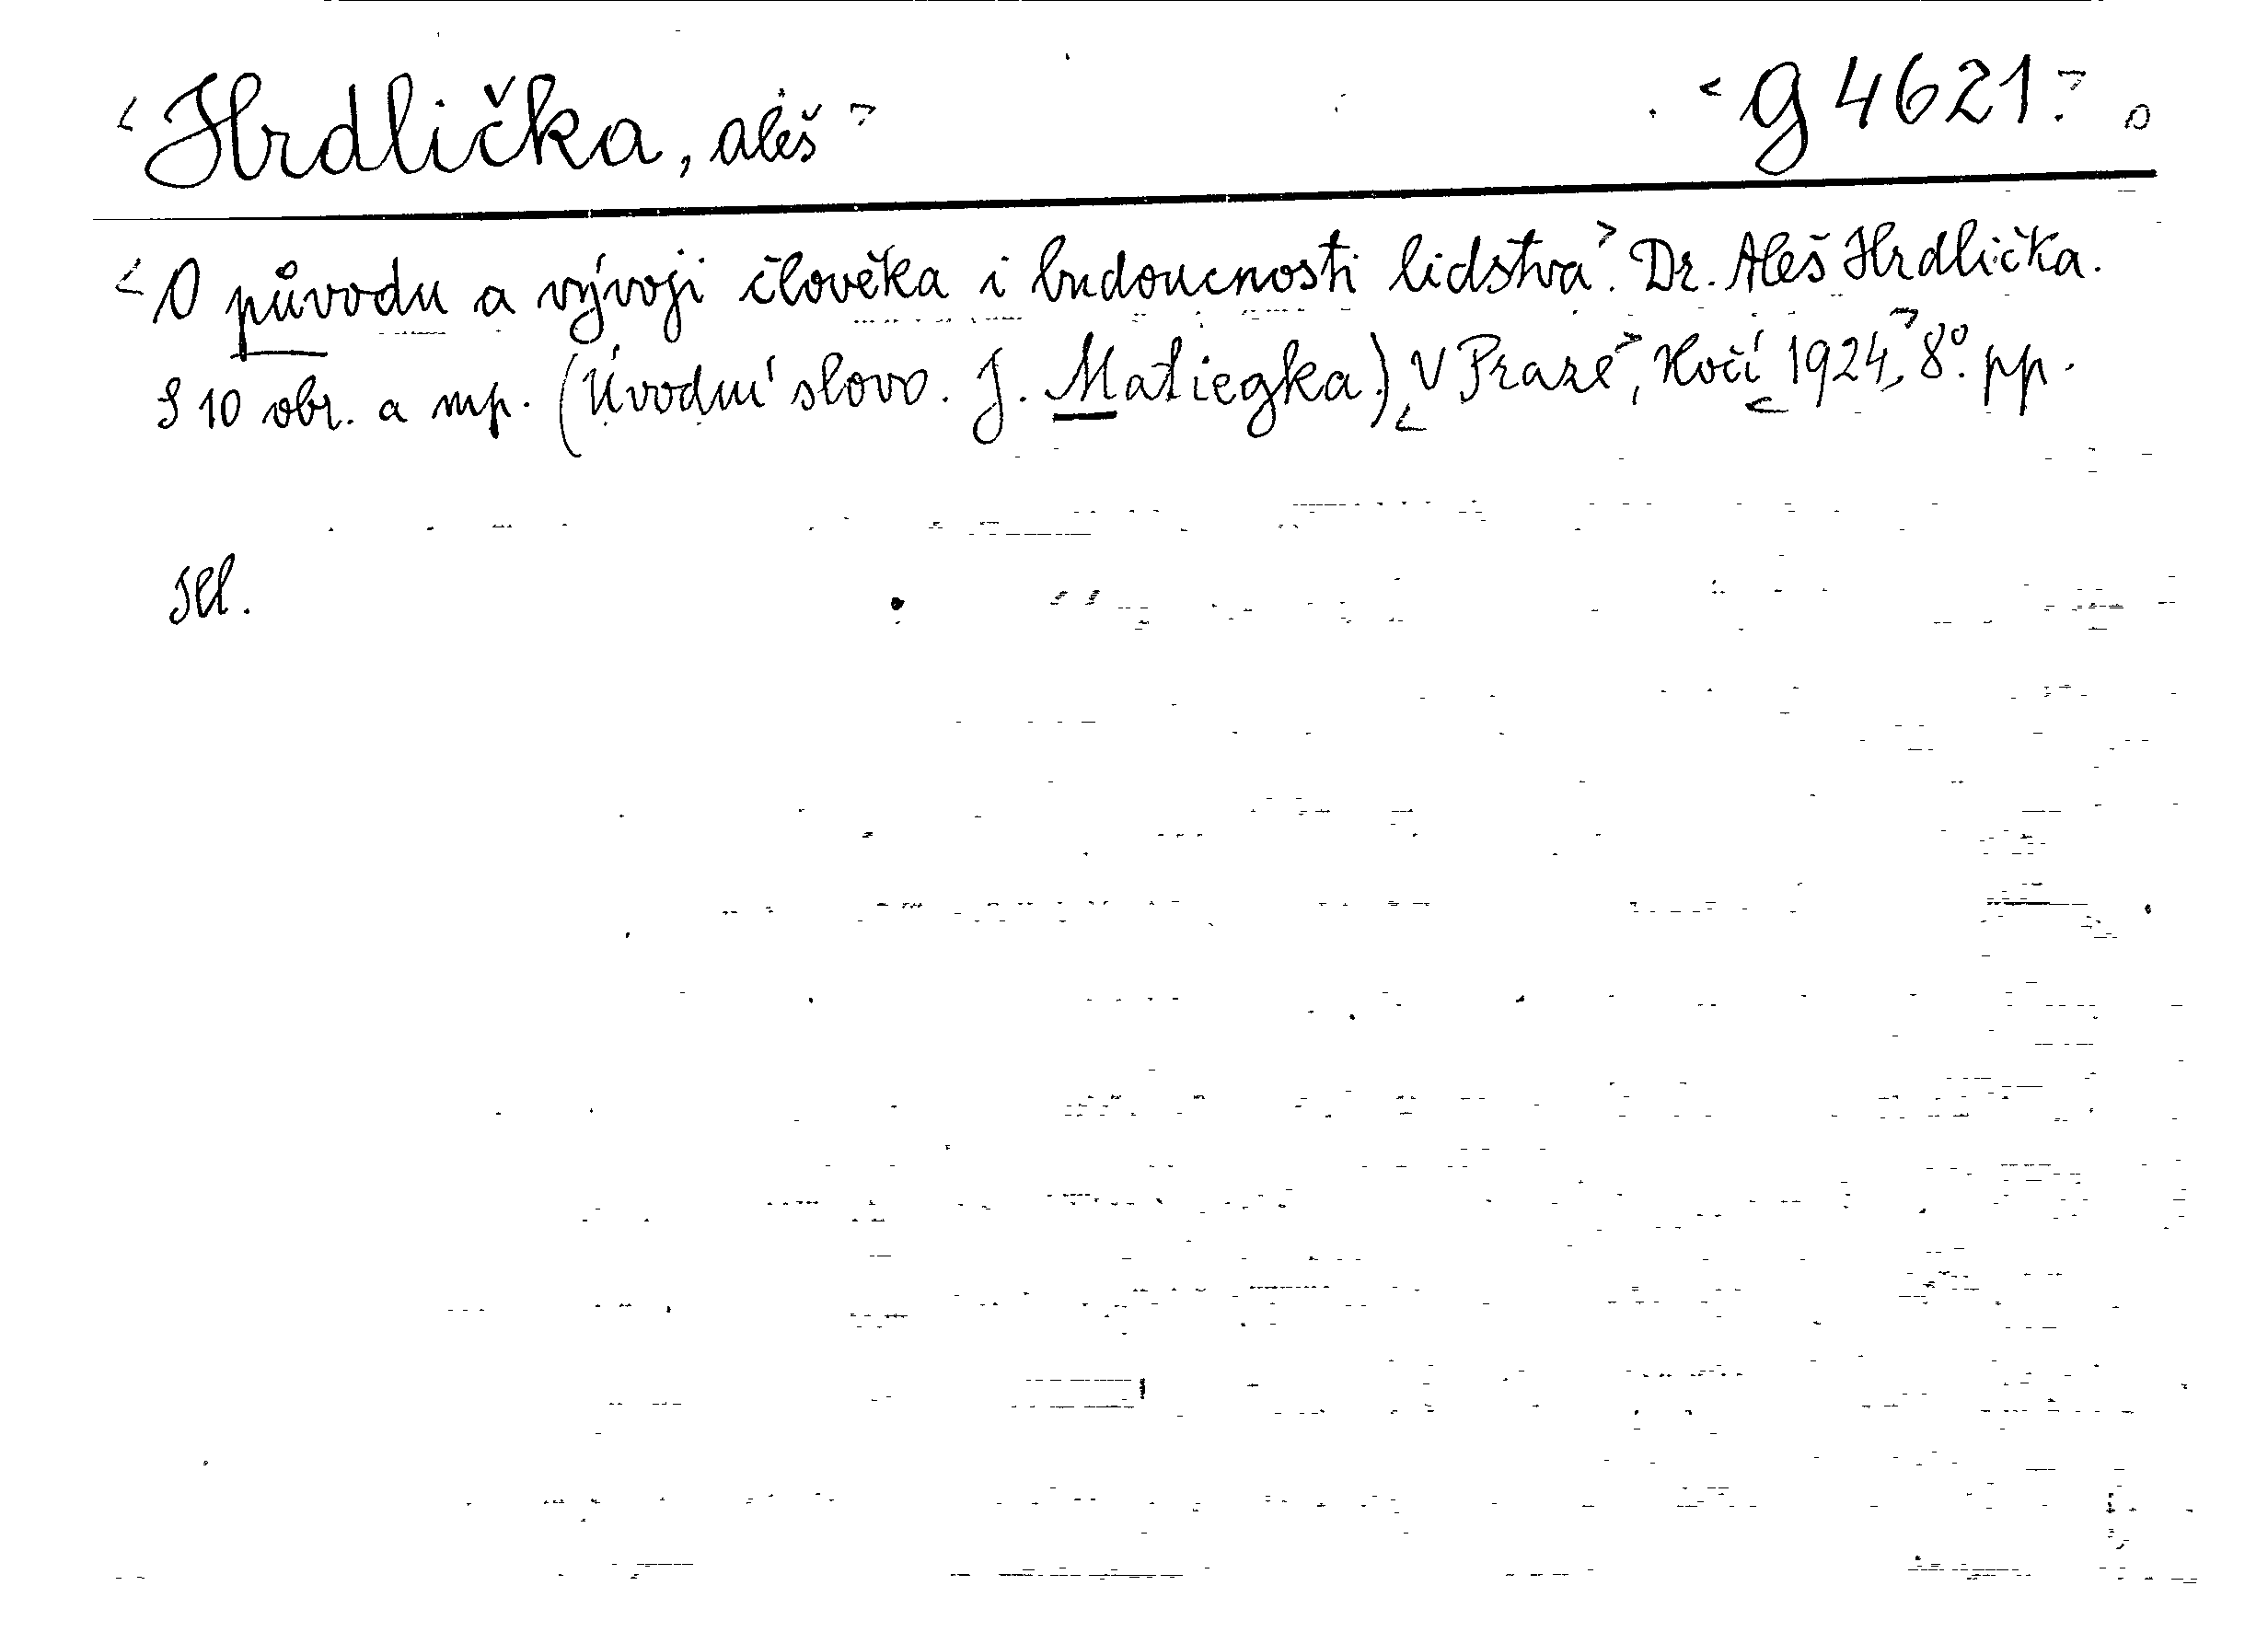 <Hrdlička, Aleš> <g 4621.>
<O původu a vývoji člověka i budoucnosti lidstva>. Dr. Aleš Hrdlička.
S 10 obr. a mp. (Úvodní slovo. J. Matiegka.) <V Praze>, Kočí <1924,> 8º. pp.
Hl.